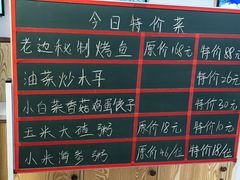 今日特价菜
老边秘制烤鱼 原价168元 特价88元
油菜炒木耳 特价26元
小白菜香菇鸡蛋饺子 特价30元
玉米大碴粥 原价18元 特价10元
小米海参粥 原价46/位 特价18/位